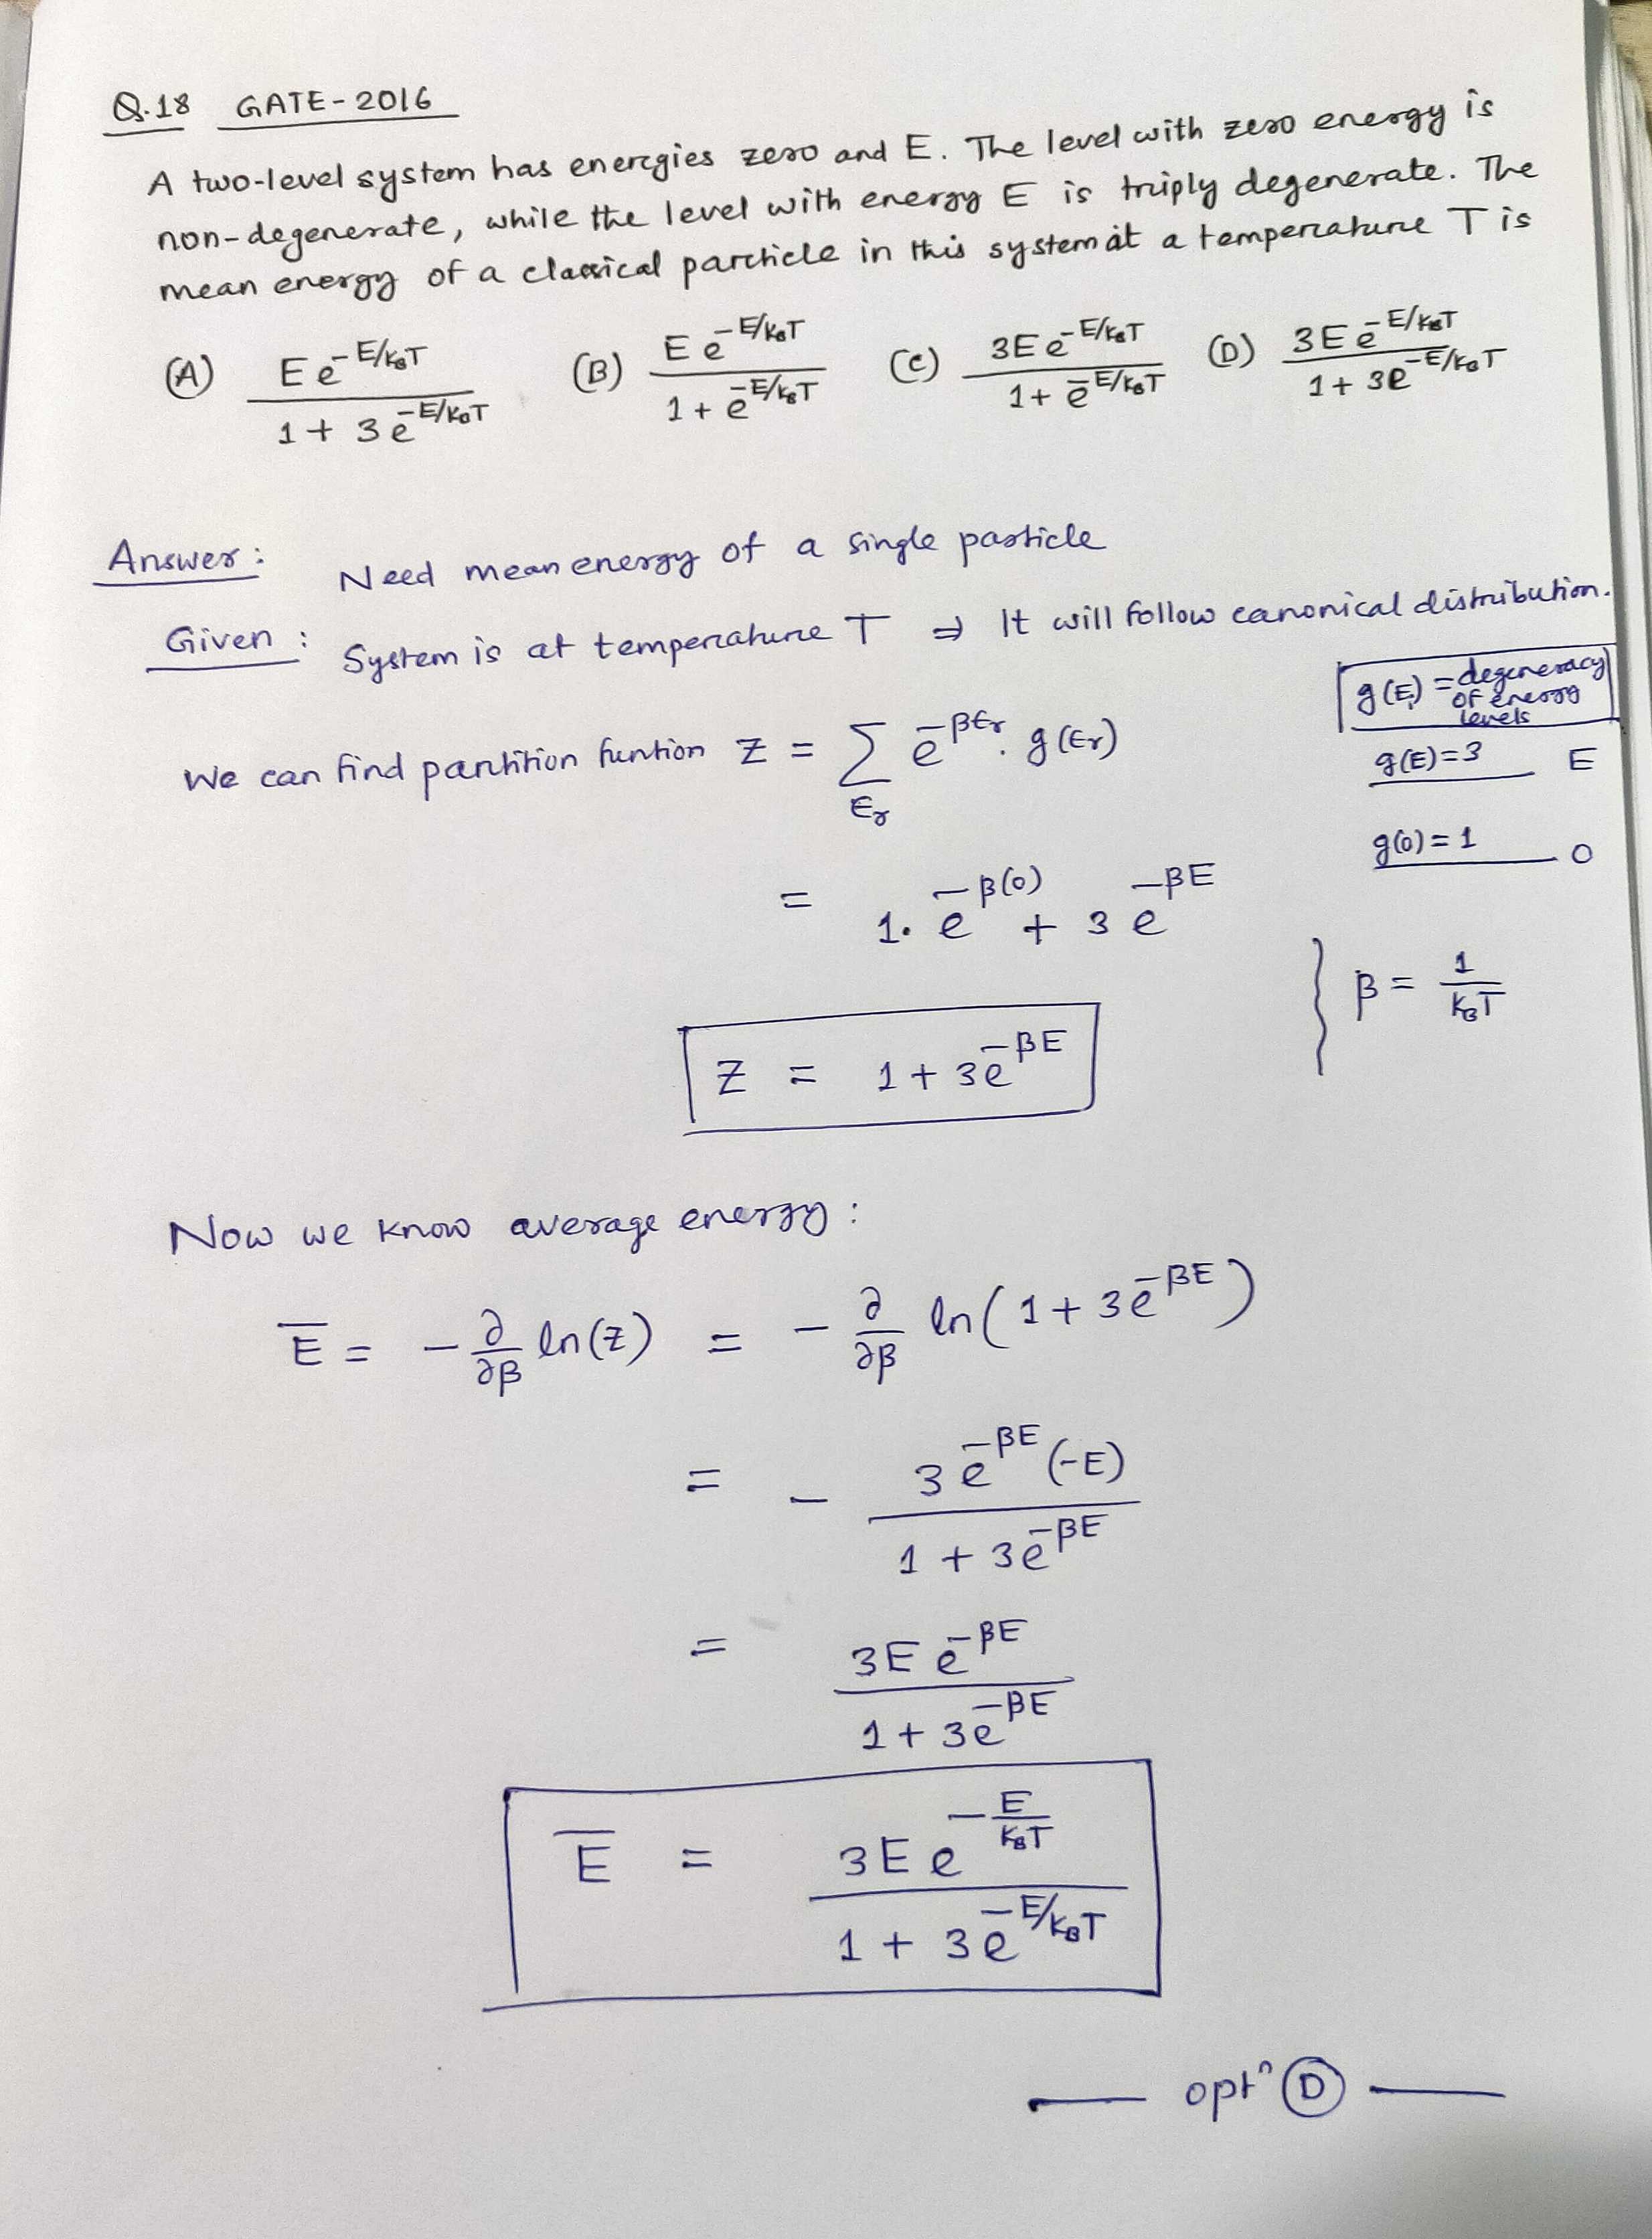 Q.18 GATE-2016
A two-level system has energies zero and E. The level with zero energy is
non-degenerate, while the level with energy E is triply degenerate. The
mean energy of a classical particle in this system at a temperature T is
(A) E e^{-E/k_BT} / (1 + 3e^{-E/k_BT}) (B) E e^{-E/k_BT} / (1 + e^{-E/k_BT}) (C) 3E e^{-E/k_BT} / (1 + e^{-E/k_BT}) (D) 3E e^{-E/k_BT} / (1 + 3e^{-E/k_BT})
Answer : Need mean energy of a single particle
Given : System is at temperature T ⇒ It will follow canonical distribution.
g(E_i) = degeneracy
of energy
levels
We can find partition funtion Z = Σ_{ϵ_r} e^{-βϵ_r} . g(ϵ_r)
g(E)=3 E
g(0)=1 0
= 1. e^{-β(0)} + 3 e^{-βE}
β = 1/k_BT
Z = 1 + 3e^{-βE}
Now we know average energy :
E̅ = - ∂/∂β ln(Z) = - ∂/∂β ln(1 + 3e^{-βE})
= - 3e^{-βE} (-E) / (1 + 3e^{-βE})
= 3E e^{-βE} / (1 + 3e^{-βE})
E̅ = 3E e^{-E/k_BT} / (1 + 3e^{-E/k_BT})
— optⁿ (D) —